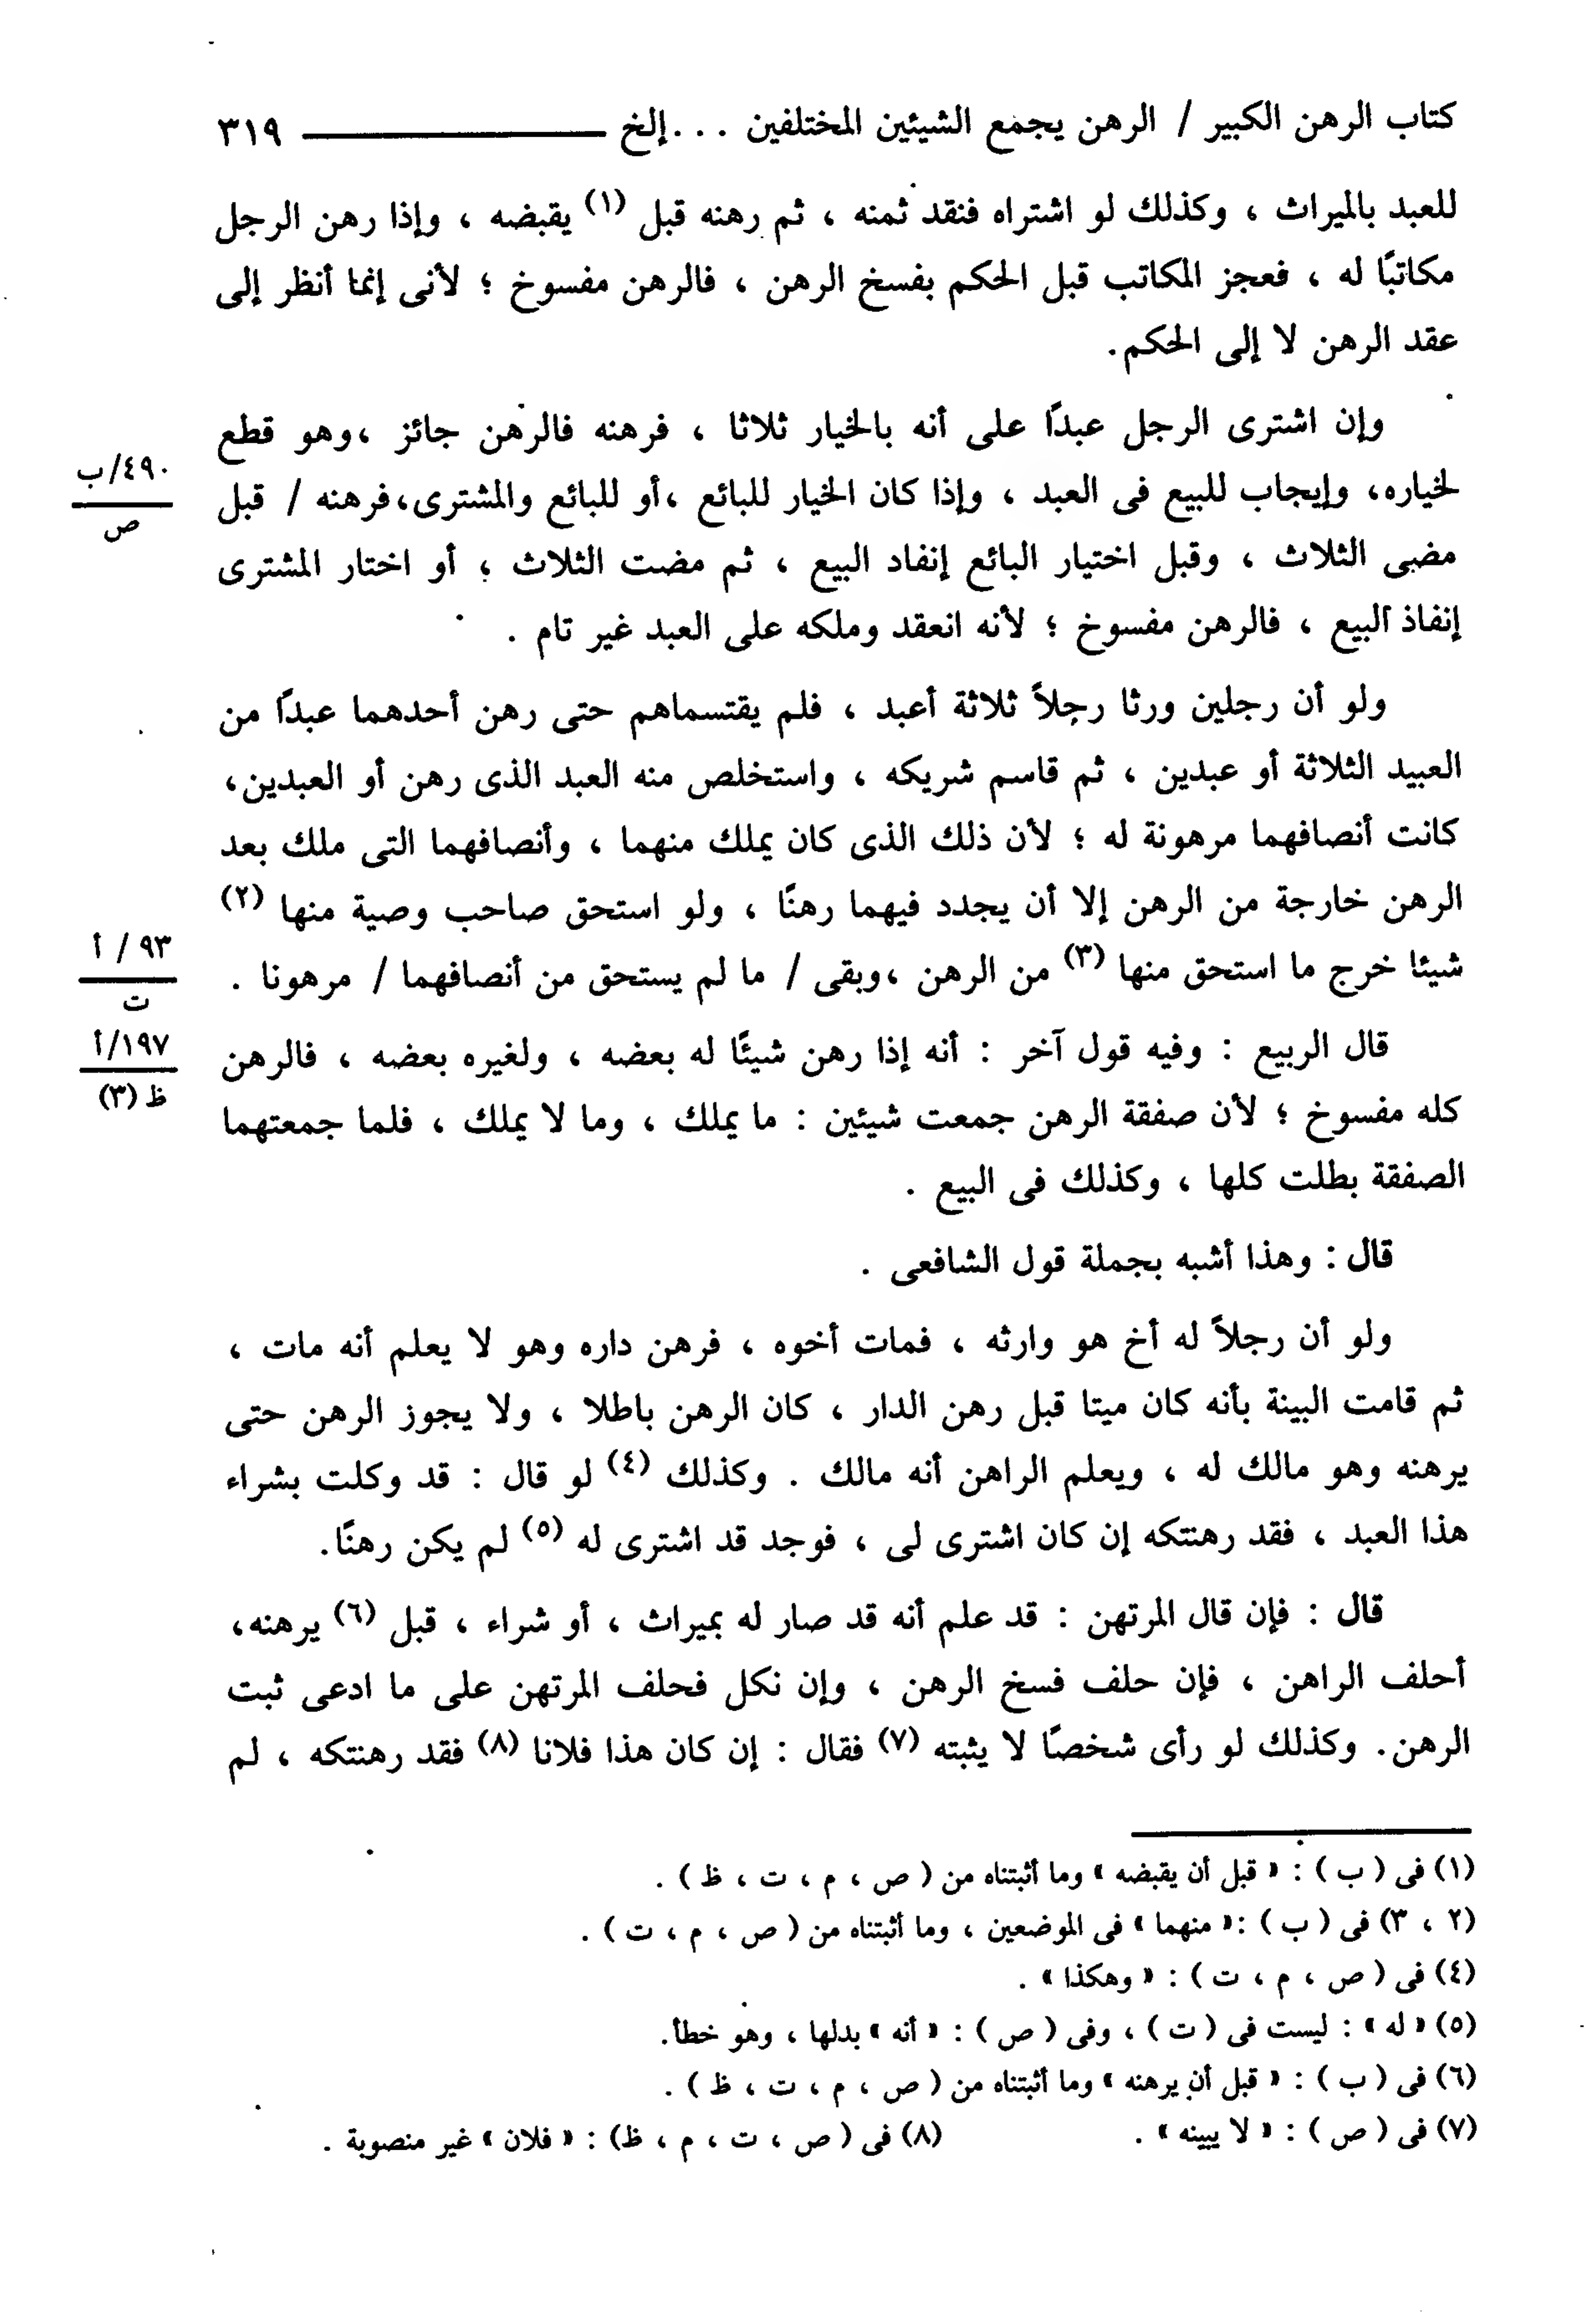 كتاب الرهن الكبير / الرهن يجمع الشيئين المختلفين . . . إلخ ــــــــــــ ٣١٩
للعبد بالميراث ، وكذلك لو اشتراه فنقد ثمنه ، ثم رهنه قبل (١) يقبضه ، وإذا رهن الرجل
مكاتبًا له ، فعجز المكاتب قبل الحكم بفسخ الرهن ، فالرهن مفسوخ ؛ لأنى إنما أنظر إلى
عقد الرهن لا إلى الحكم.
وإن اشترى الرجل عبدًا على أنه بالخيار ثلاثا ، فرهنه فالرهن جائز ،وهو قطع
لخياره، وإيجاب للبيع فى العبد ، وإذا كان الخيار للبائع ،أو للبائع والمشترى،فرهنه / قبل
٤٩٠/ب
ص
مضى الثلاث ، وقبل اختيار البائع إنفاد البيع ، ثم مضت الثلاث ؛ أو اختار المشترى
إنفاذ البيع ، فالرهن مفسوخ ؛ لأنه انعقد وملكه على العبد غير تام .
ولو أن رجلين ورثا رجلاً ثلاثة أعبد ، فلم يقتسماهم حتى رهن أحدهما عبدًا من
العبيد الثلاثة أو عبدين ، ثم قاسم شريكه ، واستخلص منه العبد الذى رهن أو العبدين،
كانت أنصافهما مرهونة له ؛ لأن ذلك الذى كان يملك منهما ، وأنصافهما التى ملك بعد
الرهن خارجة من الرهن إلا أن يجدد فيهما رهنًا ، ولو استحق صاحب وصية منها (٢)
شيئا خرج ما استحق منها (٣) من الرهن ،وبقى / ما لم يستحق من أنصافهما / مرهونا .
٩٣ / أ
ت
١٩٧/أ
ظ (٣)
قال الربيع : وفيه قول آخر : أنه إذا رهن شيئًا له بعضه ، ولغيره بعضه ، فالرهن
كله مفسوخ ؛ لأن صفقة الرهن جمعت شيئين : ما يملك ، وما لا يملك ، فلما جمعتهما
الصفقة بطلت كلها ، وكذلك فى البيع .
قال : وهذا أشبه بجملة قول الشافعى .
ولو أن رجلاً له أخ هو وارثه ، فمات أخوه ، فرهن داره وهو لا يعلم أنه مات ،
ثم قامت البينة بأنه كان ميتا قبل رهن الدار ، كان الرهن باطلا ، ولا يجوز الرهن حتى
يرهنه وهو مالك له ، ويعلم الراهن أنه مالك . وكذلك (٤) لو قال : قد وكلت بشراء
هذا العبد ، فقد رهنتكه إن كان اشترى لى ، فوجد قد اشترى له (٥) لم يكن رهنًا.
قال : فإن قال المرتهن : قد علم أنه قد صار له بميراث ، أو شراء ، قبل (٦) يرهنه،
أحلف الراهن ، فإن حلف فسخ الرهن ، وإن نكل فحلف المرتهن على ما ادعى ثبت
الرهن. وكذلك لو رأى شخصًا لا يثبته (٧) فقال : إن كان هذا فلانا (٨) فقد رهنتكه ، لم
(١) فى ( ب ) : « قبل أن يقبضه » وما أثبتناه من ( ص ، م ، ت ، ظ ) .
(٢ ، ٣) فى ( ب ) :« منهما » فى الموضعين ، وما أثبتناه من ( ص ، م ، ت ) .
(٤) فى ( ص ، م ، ت ) : « وهكذا » .
(٥) « له » : ليست فى ( ت ) ، وفى ( ص ) : « أنه » بدلها ، وهو خطأ.
(٦) فى ( ب ) : « قبل أن يرهنه » وما أثبتناه من ( ص ، م ، ت ، ظ ) .
(٧) فى ( ص ) : « لا يبينه » .
(٨) فى ( ص ، ت ، م ، ظ) : « فلان » غير منصوبة .